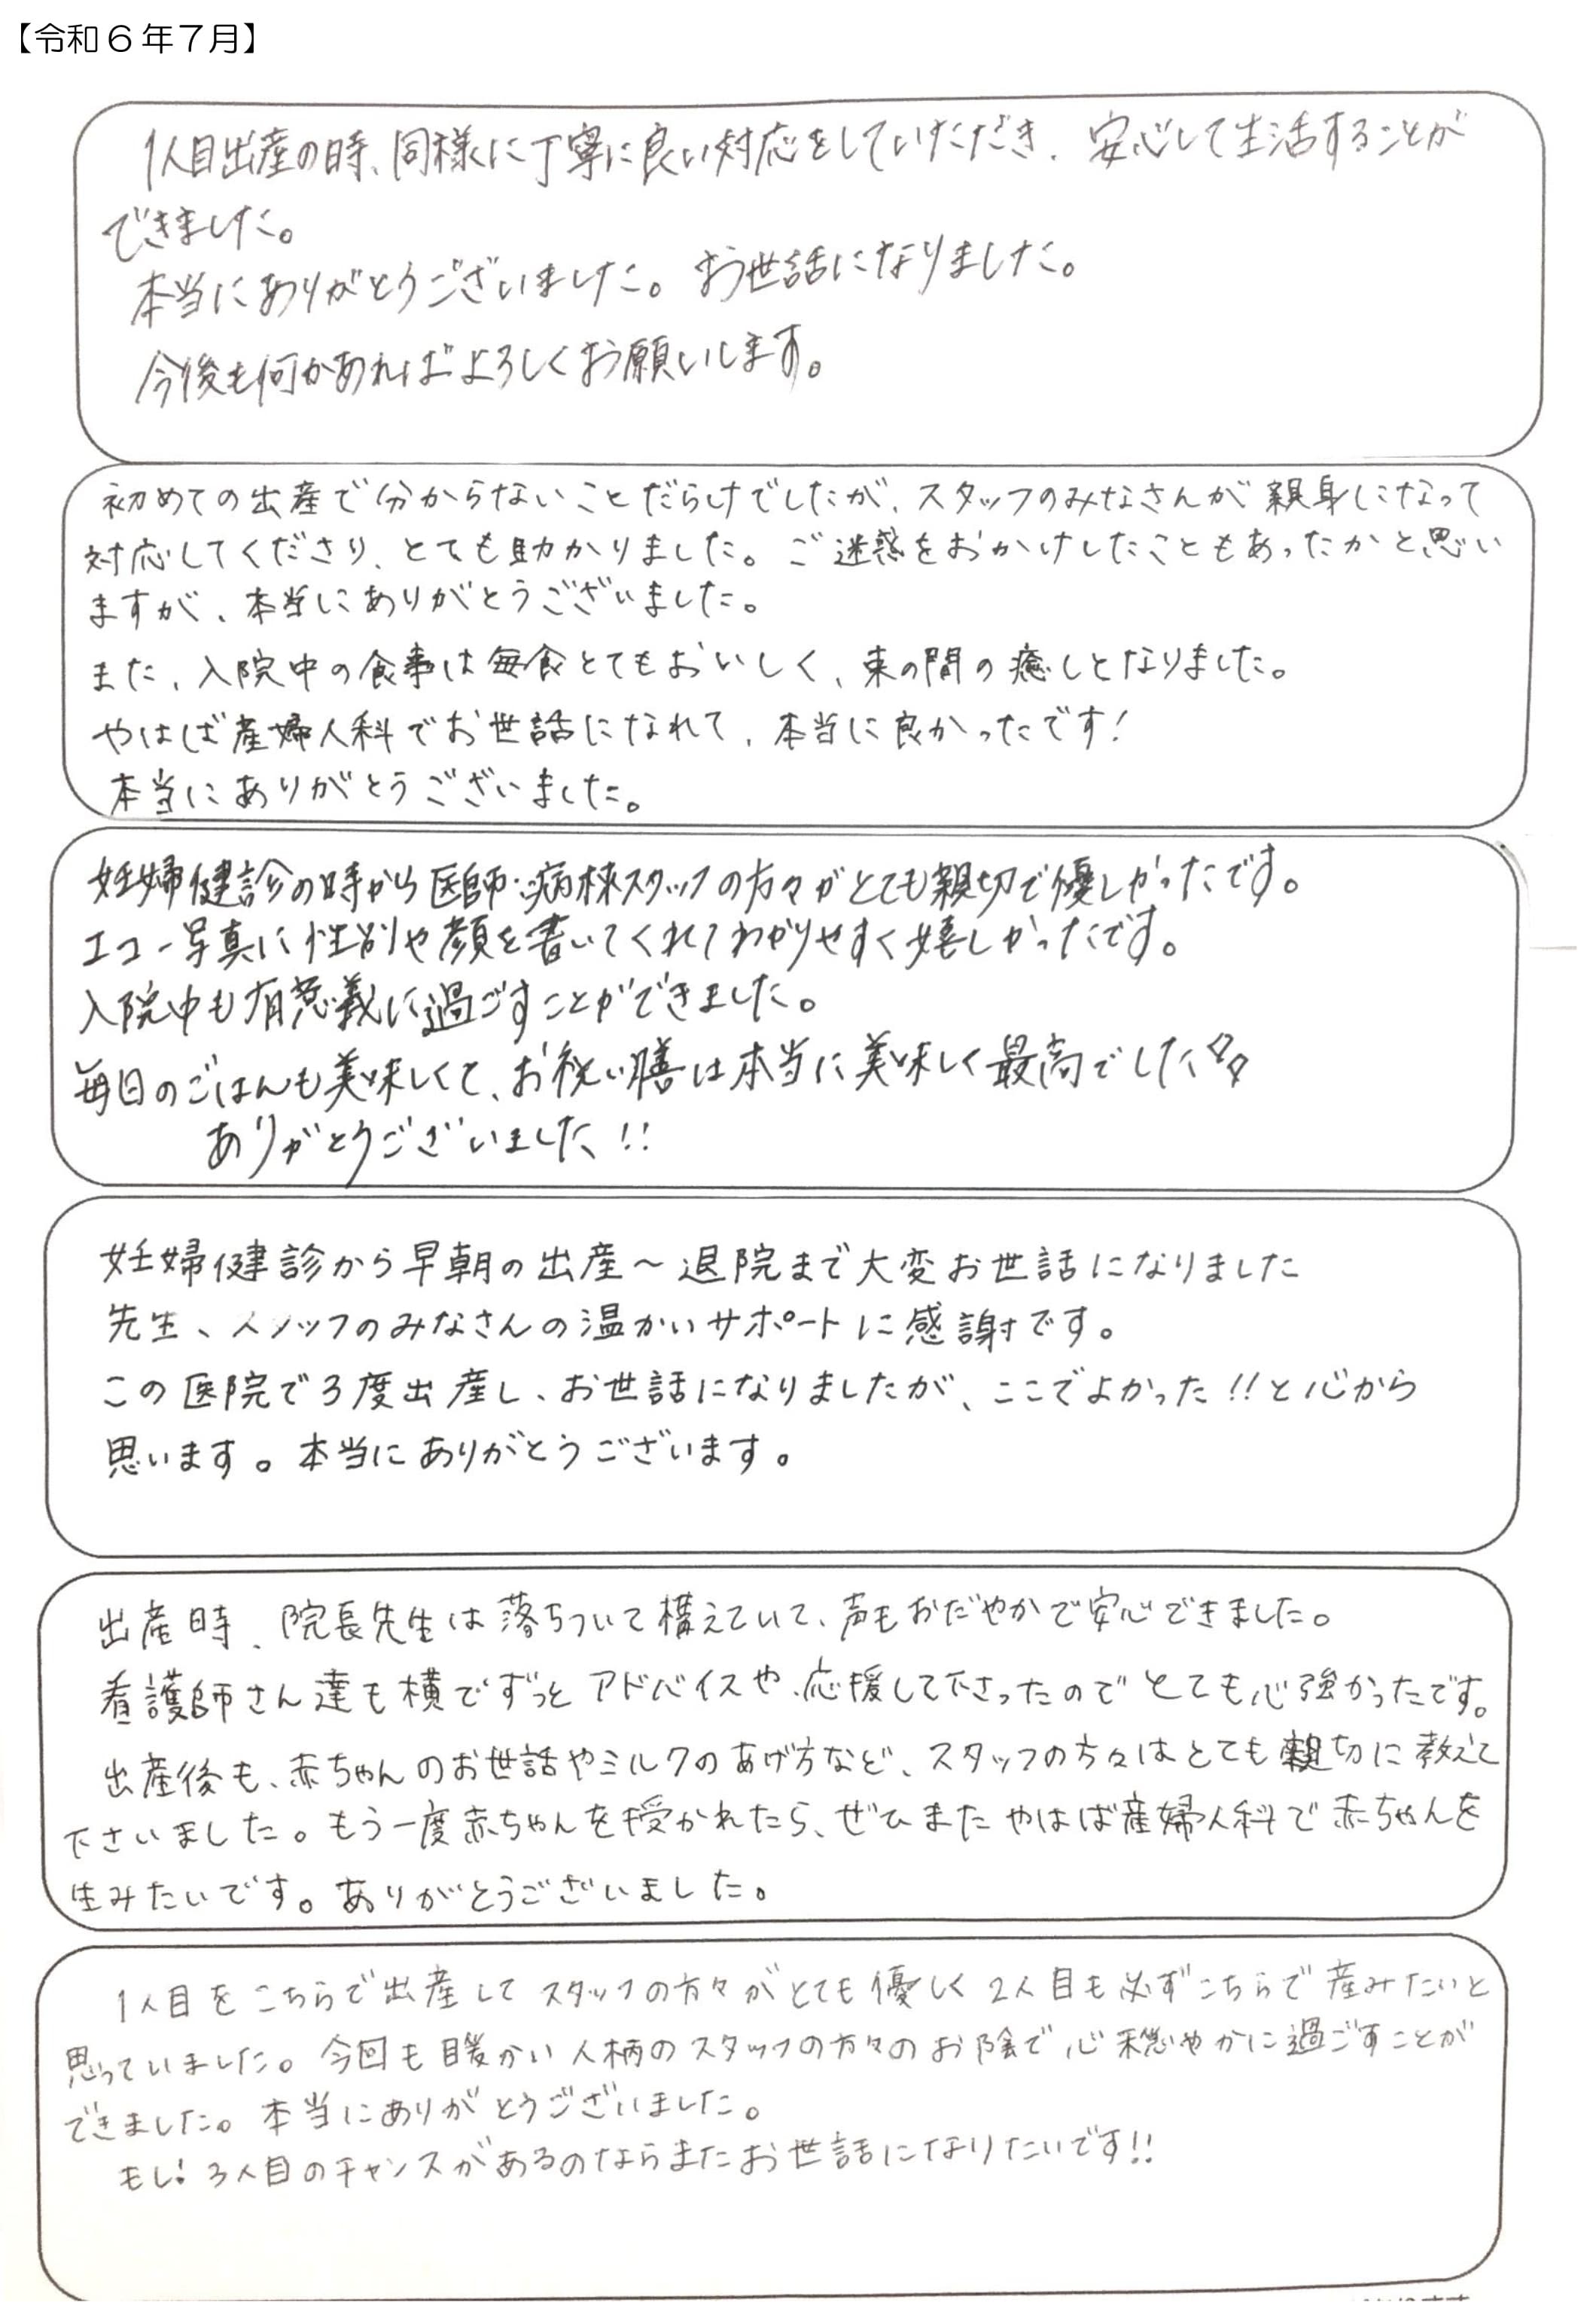 【令和６年７月】
1人目出産の時、同様に丁寧に良い対応をしていただき、安心して生活することが
できました。
本当にありがとうございました。お世話になりました。
今後も何かあればよろしくお願いします。
初めての出産で分からないことだらけでしたが、スタッフのみなさんが親身になって
対応してくださり、とても助かりました。ご迷惑をおかけしたこともあったかと思い
ますが、本当にありがとうございました。
また、入院中の食事は毎食とてもおいしく、束の間の癒しとなりました。
やはば産婦人科でお世話になれて、本当に良かったです！
本当にありがとうございました。
妊婦健診の時から医師・病棟スタッフの方々がとても親切で優しかったです。
エコー写真に性別や顔を書いてくれてわかりやすく嬉しかったです。
入院中も有意義に過ごすことができました。
毎日のごはんも美味しくて、お祝い膳は本当に美味しく最高でした
ありがとうございました!!
妊婦健診から早朝の出産～退院まで大変お世話になりました
先生、スタッフのみなさんの温かいサポートに感謝です。
この医院で3度出産し、お世話になりましたが、ここでよかった!!と心から
思います。本当にありがとうございます。
出産時、院長先生は落ちついて構えていて、声もおだやかで安心できました。
看護師さん達も横でずっとアドバイスや、応援して下さったのでとても心強かったです。
出産後も、赤ちゃんのお世話やミルクのあげ方など、スタッフの方々はとても親切に教えて
下さいました。もう一度赤ちゃんを授かれたら、ぜひまたやはば産婦人科で赤ちゃんを
生みたいです。ありがとうございました。
1人目をこちらで出産してスタッフの方々がとても優しく2人目も必ずこちらで産みたいと
思っていました。今回も暖かい人柄のスタッフの方々のお陰で心穏やかに過ごすことが
できました。本当にありがとうございました。
もし！3人目のチャンスがあるのならまたお世話になりたいです!!